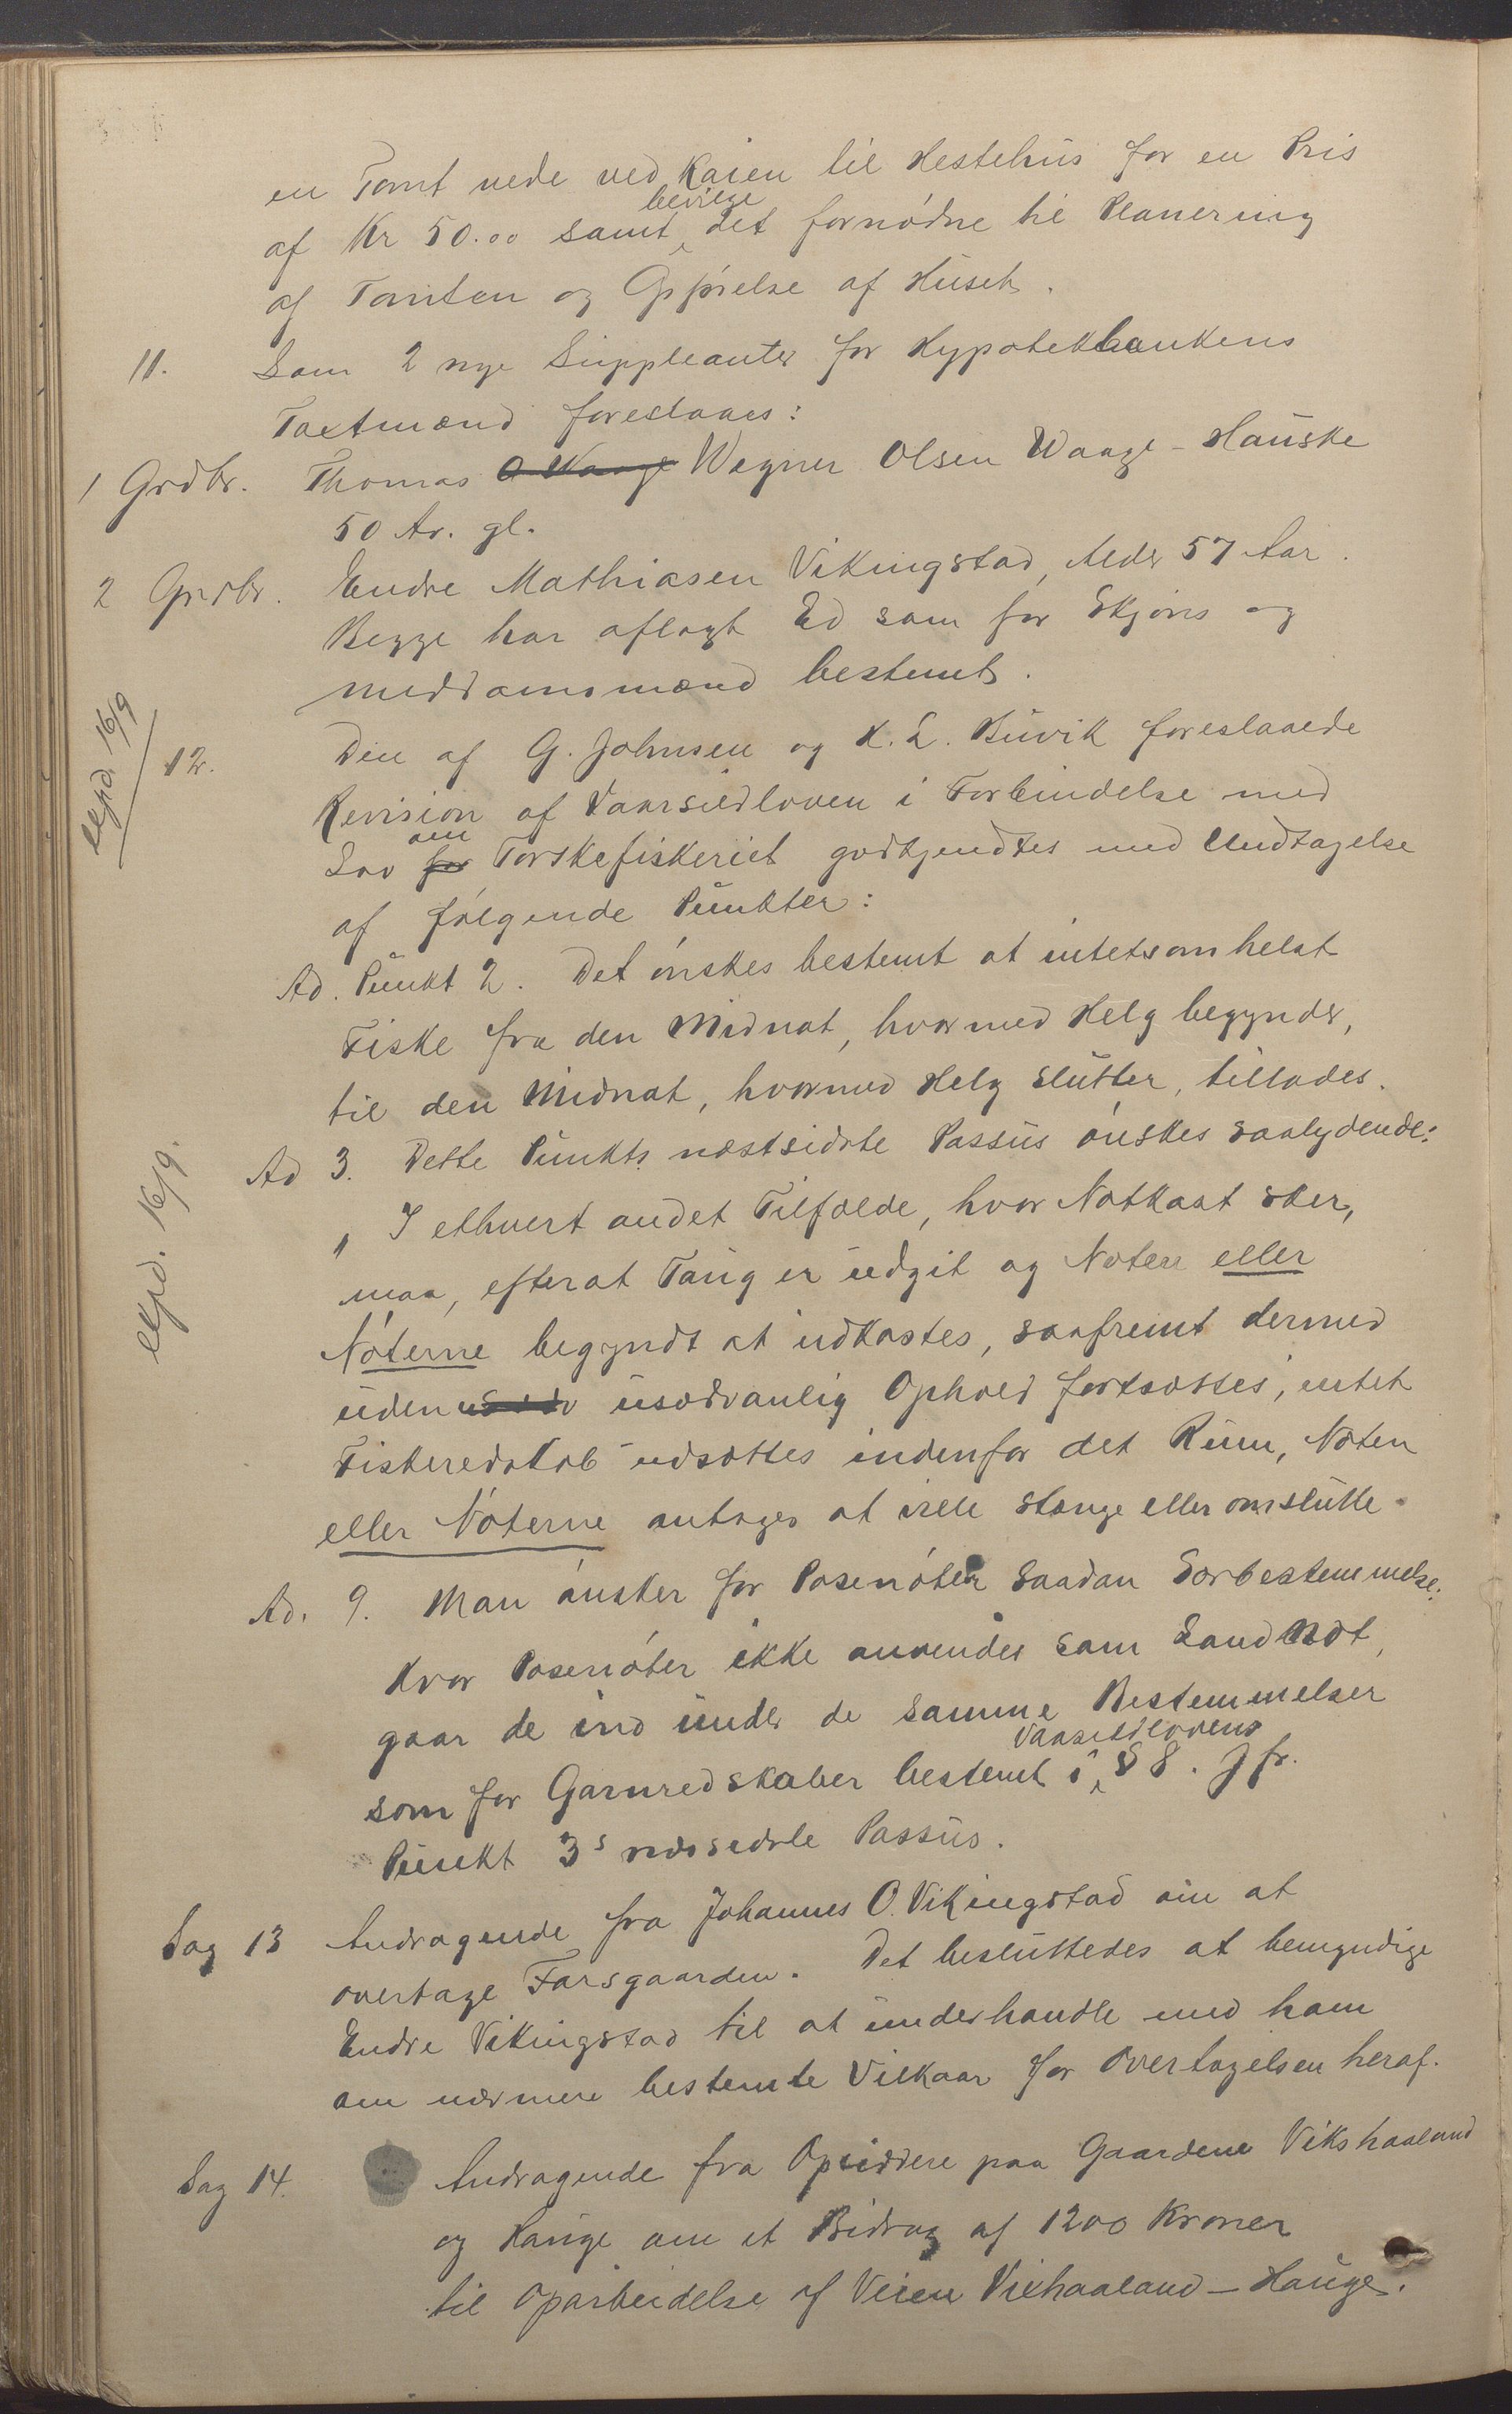 en Tomt nede ved Kaien til Hestehus for en Pris
af Kr 50.00 samt bevilge det fornødne til Planering
af Tomten og Opførelse af Huset.
11. Som 2 nye Suppleanter for Hypotekbankens
Taxtmænd foreslaaes:
1 Grdbr. Thomas O Waage Wegner Olsen Waage - Hauske
50 Ar. gl.
2 Grdbr. Endre Mathiasen Vikingstad, Alder 57 Aar.
Begge har aflagt Ed som for Skjøns og
meddomsmænd bestemt.
expd. 16/9
12. Den af G. Johnsen og K. L. Buvik foreslaaede
Revision af Vaarsildloven i Forbindelse med
Lov for om Torskefiskeriet godkjendtes med Undtagelse
af følgende Punkter:
Ad. Punkt 2. Det ønskes bestemt at intetsomhelst
Fiske fra den Midnat, hvormed Helg begynder,
til den Midnat, hvormed Helg slutter, tillades.
expd. 16/9.
Ad 3. Dette Punkts næstsidste Passus ønskes saalydende:
„ I ethvert andet Tilfælde, hvor Notkast sker,
maa, efterat Taug er udgit og Noten eller
Nøterne begyndt at udkastes, saafremt dermed
uden usædvanlig Ophold fortsættes, intet
Fiskeredskab udsættes indenfor det Rum, Noten
eller Nøterne antages at ville stænge eller omslutte.
Ad. 9. Man ønsker for Posenøter saadan Særbestemmelse:
Hvor Posenøter ikke anvendes som Landnot,
gaar de ind under de samme Bestemmelser
som for Garnredskaber bestemt i Vaarsildlovens § 8. Jfr.
Punkt 3s Passus.
Sag 13 Andragende fra Johannes O. Vikingstad om at
overtage Farsgaarden. Det besluttedes at bemyndige
Endre Vikingstad til at underhandle med ham
om nærmere bestemte Vilkaar for Overtagelsen heraf.
Sag 14. Andragende fra Opsiddere paa Gaardene Vikshaaland
og Hauge om et Bidrag af 1200 Kroner
til Oparbeidelse af Veien Vixhaaland - Hauge.